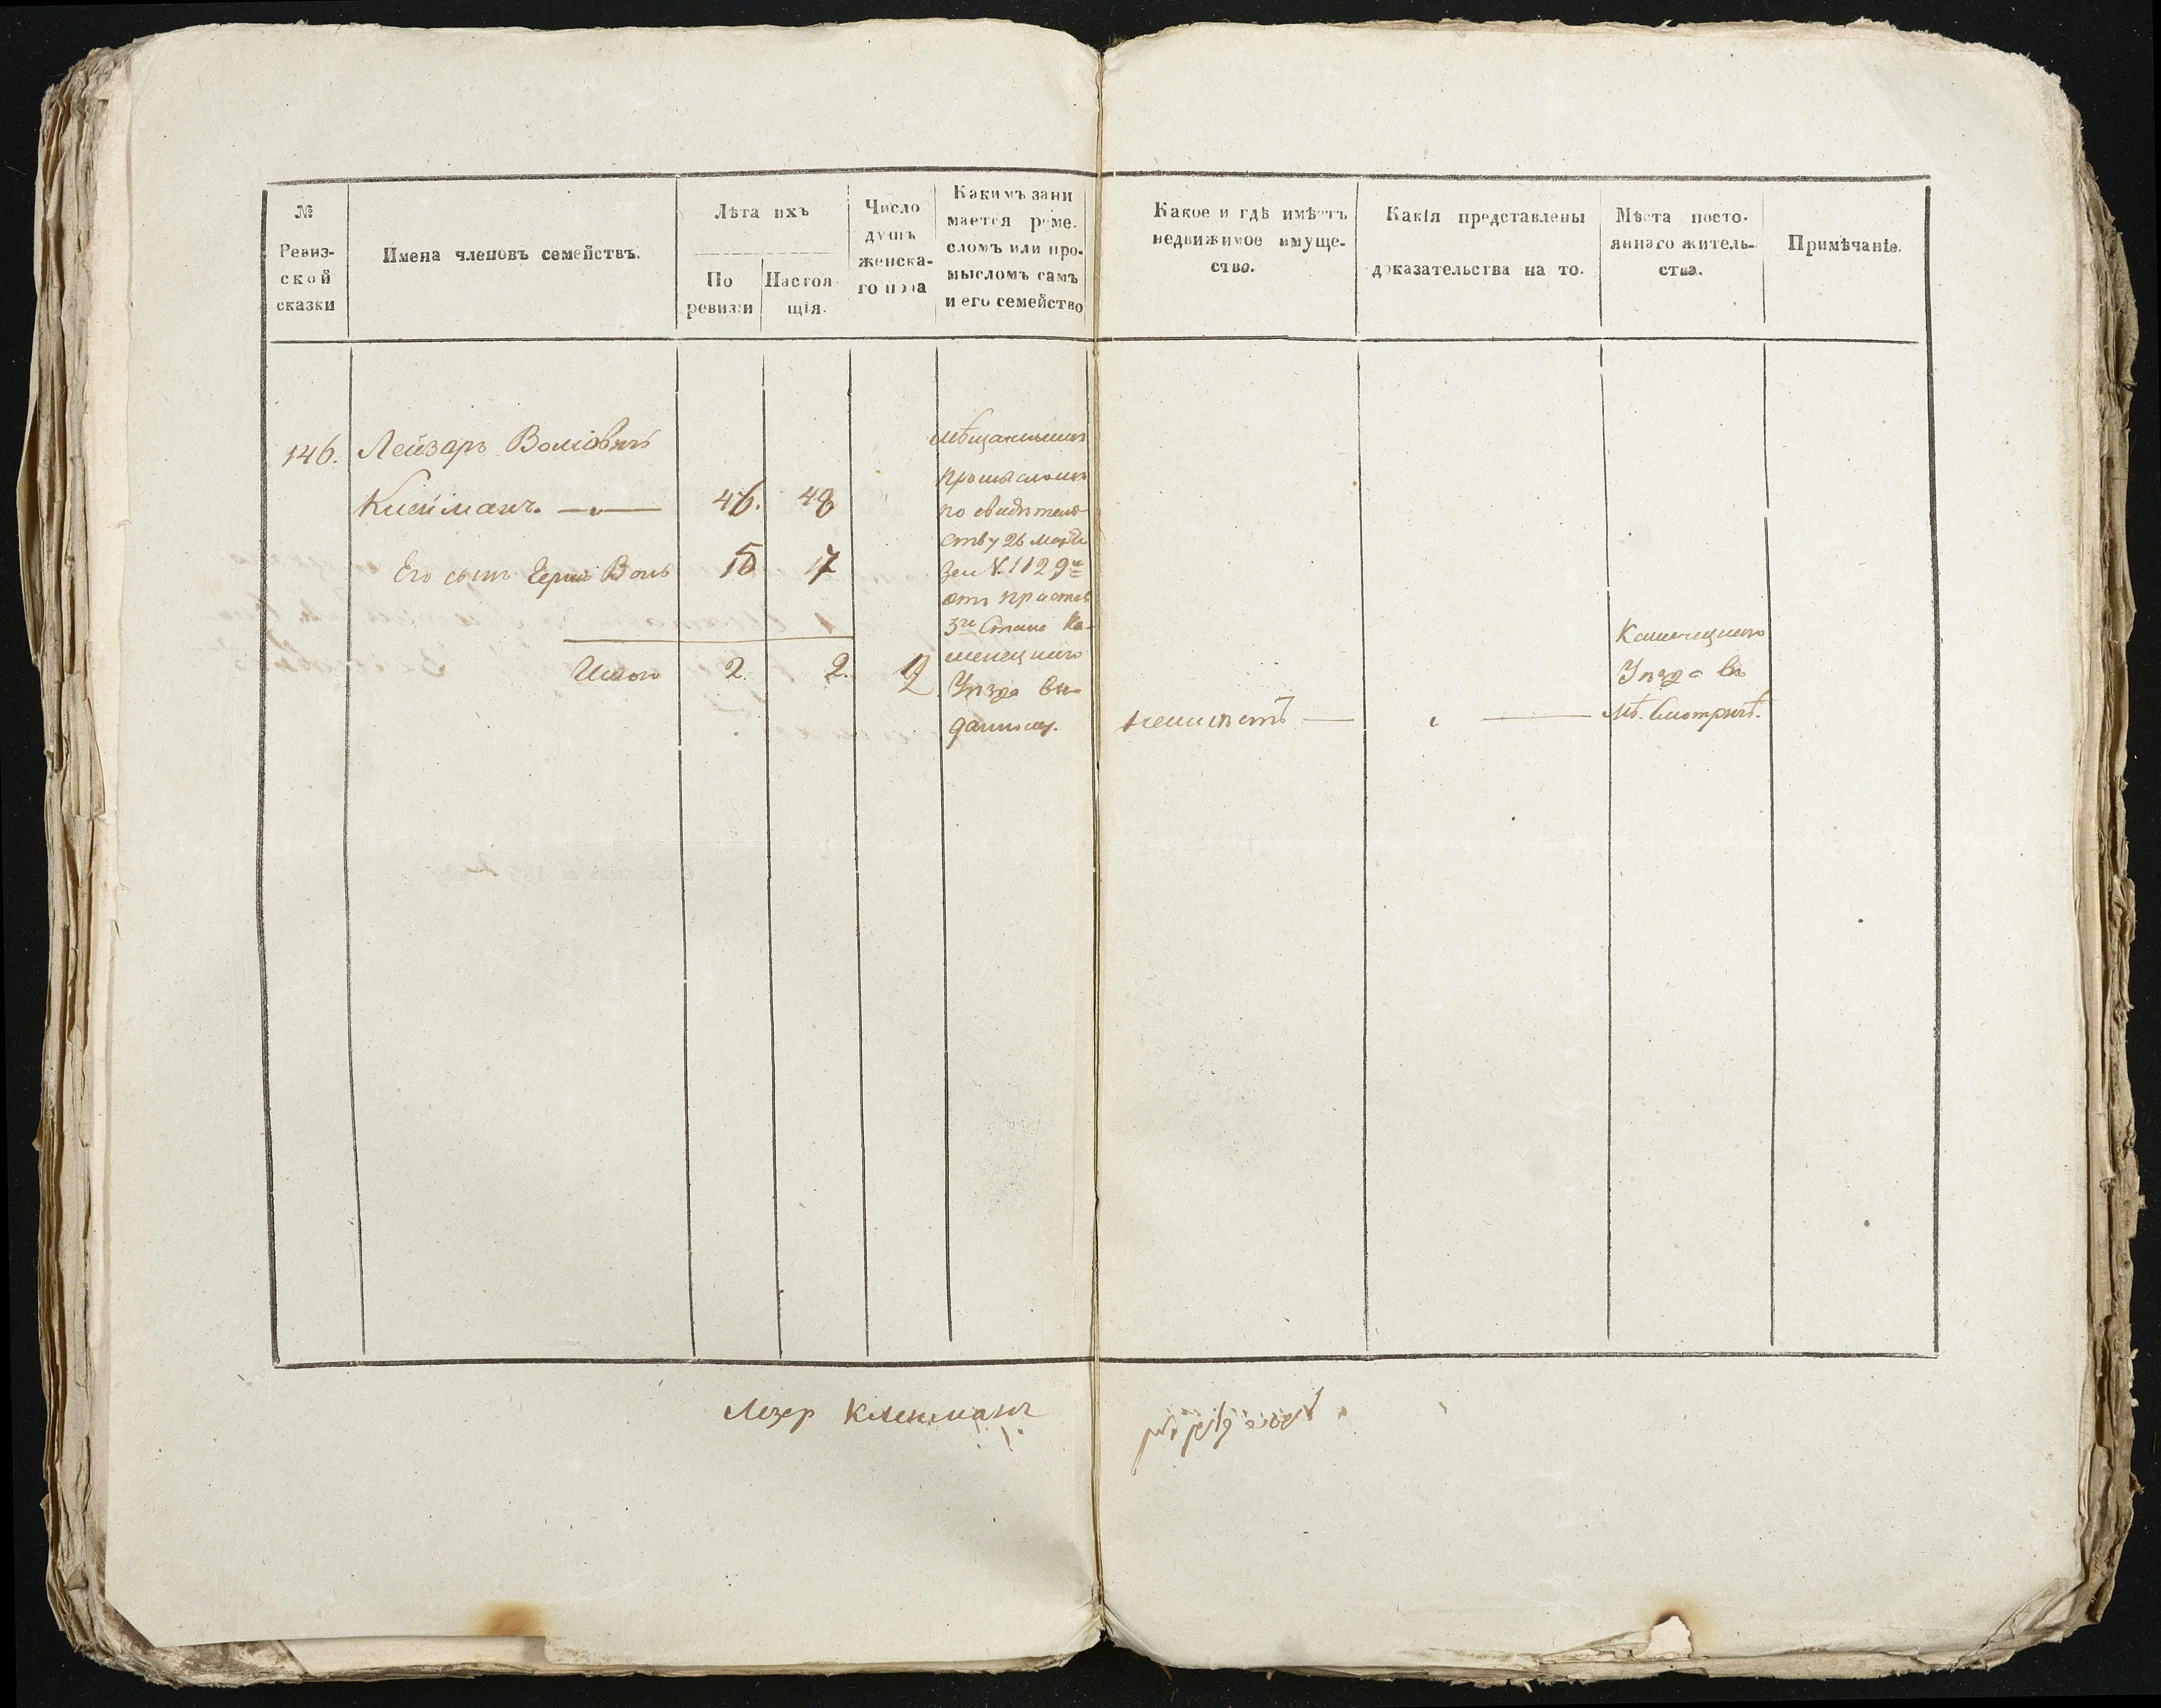 №
Ревиз-
ской
сказки
Имена членовъ семействъ.
Лѣта ихъ
По
ревизіи
Настоя-
щія.
Число
душъ
женска-
го пола
Какимъ зани
мается реме-
сломъ или про-
мысломъ самъ
и его семейство
Какое и гдѣ имѣетъ
недвижимое имуще-
ство.
Какія представлены
доказательства на то.
Мѣста посто-
яннаго житель-
ства.
Примѣчаніе.
146. Лейзаръ Волковичъ
Клейманъ. 46. 48
Его сынъ Герш Волъ 15 17
Итого 2. 2. 2
мѣщанскимъ
промысломъ
по свидѣтель
ству 26 марта
за N. 1129
отъ пристава
3го Стана Ка-
менецкого
Уѣзда вы-
данному.
неимѣетъ
Каменецкого
Уѣзда въ
мѣ. Смотричѣ.
Лезер Клейманъ